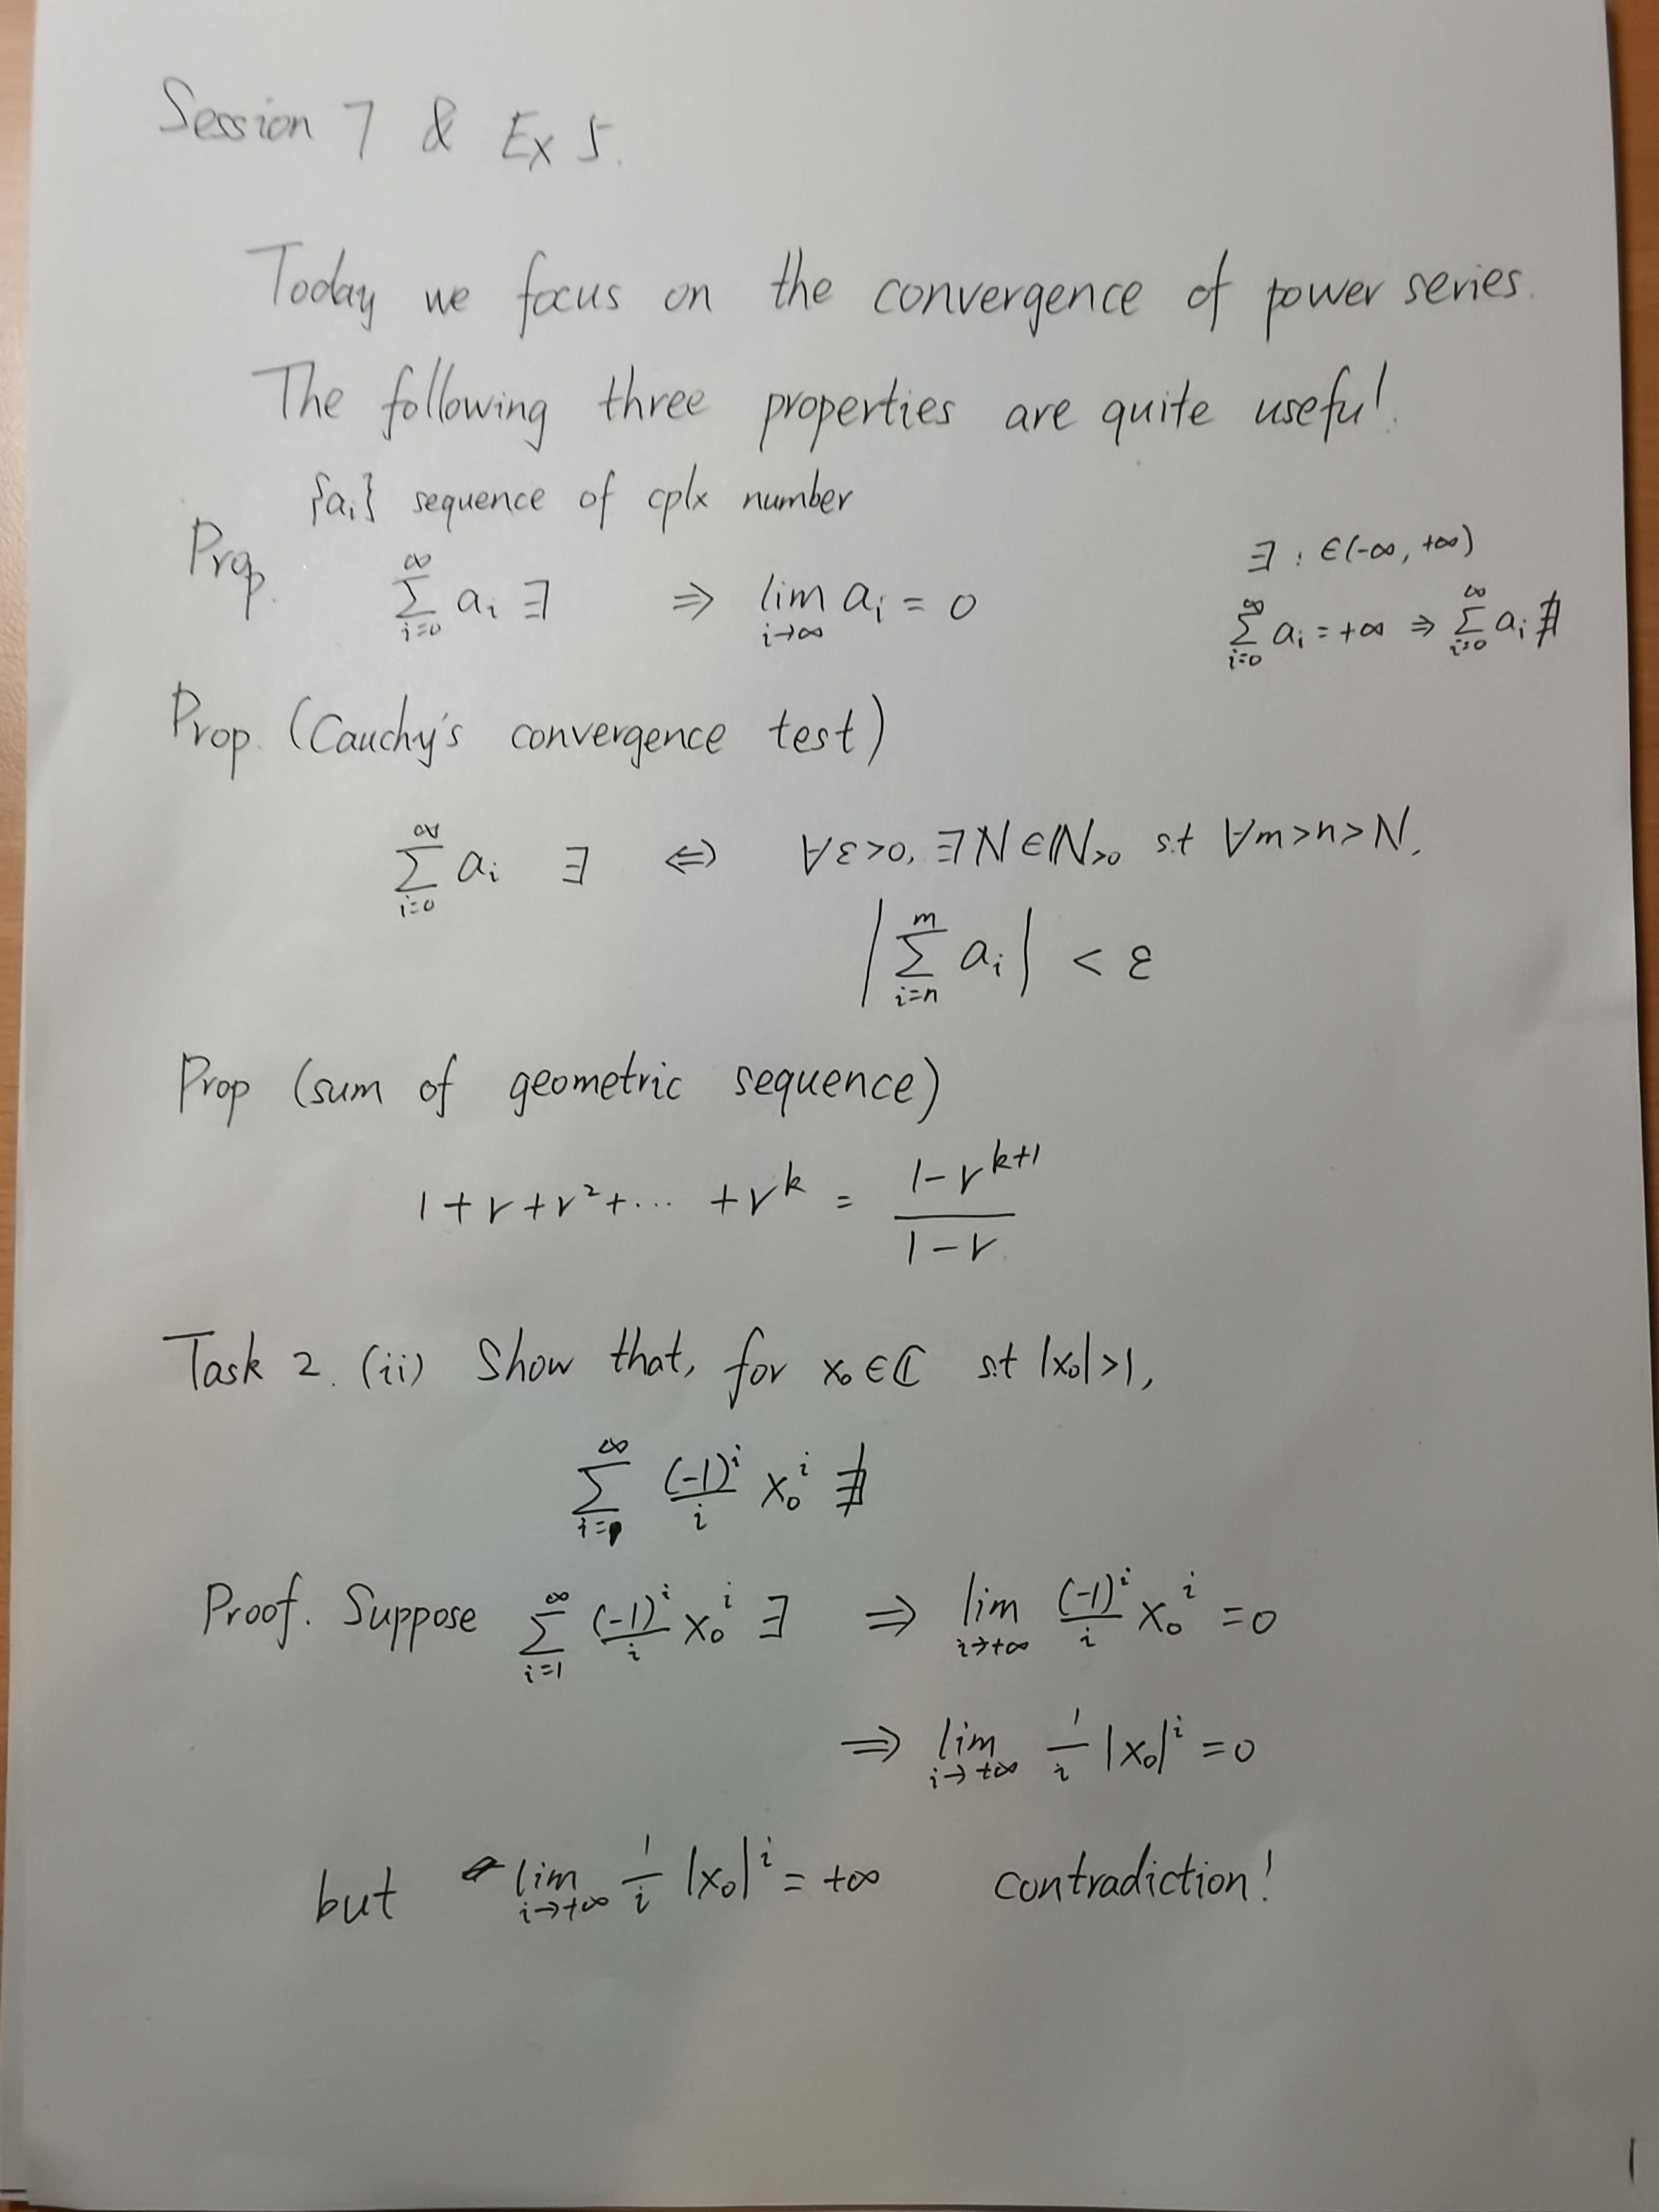 Session 7 & Ex 5.
Today we focus on the convergence of power series.
The following three properties are quite useful.
{aᵢ} sequence of cplx number
Prop. ∑_{i=0}^{∞} aᵢ ∃ ⇒ lim_{i→∞} aᵢ = 0
∃ : ∈(-∞, +∞)
∑_{i=0}^{∞} aᵢ = +∞ ⇒ ∑_{i=0}^{∞} aᵢ ∄
Prop. (Cauchy's convergence test)
∑_{i=0}^{∞} aᵢ ∃ ⇔ ∀ε>0, ∃N∈ℕ_{>0} s.t ∀m>n>N,
|∑_{i=n}^{m} aᵢ| < ε
Prop (sum of geometric sequence)
1+r+r²+... +r^k = \frac{1-r^{k+1}}{1-r}
Task 2. (ii) Show that, for x₀∈ℂ s.t |x₀|>1,
∑_{i=1}^{∞} \frac{(-1)^i}{i} x₀^i ∄
Proof. Suppose ∑_{i=1}^{∞} \frac{(-1)^i}{i} x₀^i ∃ ⇒ lim_{i→+∞} \frac{(-1)^i}{i} x₀^i = 0
⇒ lim_{i→+∞} \frac{1}{i} |x₀|^i = 0
but lim_{i→+∞} \frac{1}{i} |x₀|^i = +∞ contradiction!
1